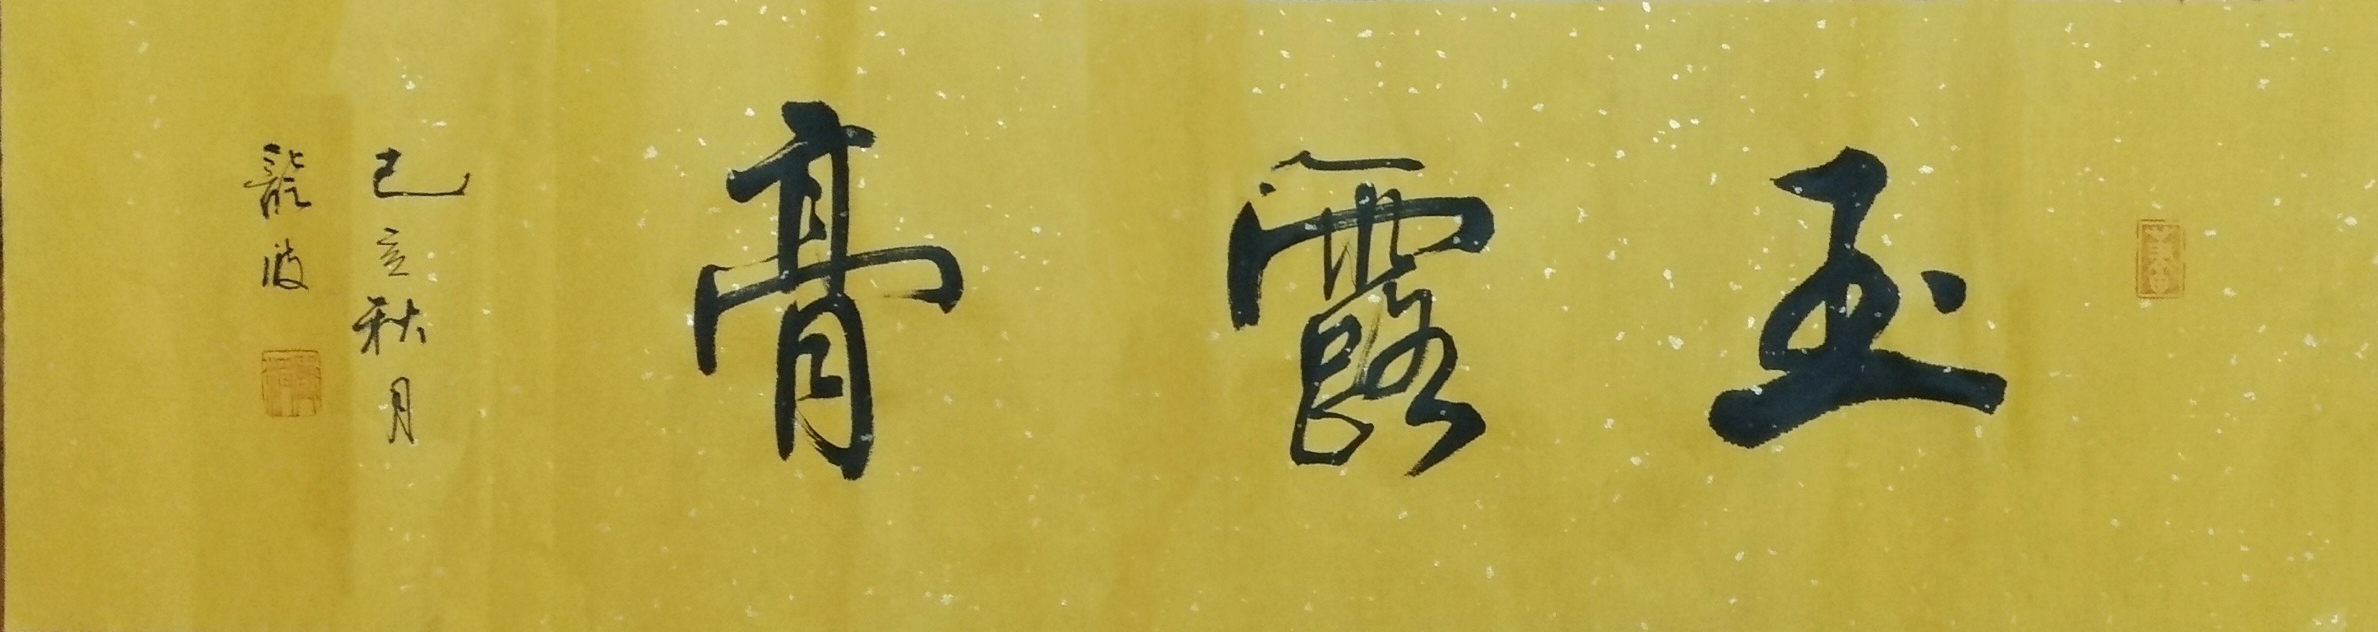 玉露膏
己亥秋月
龍波